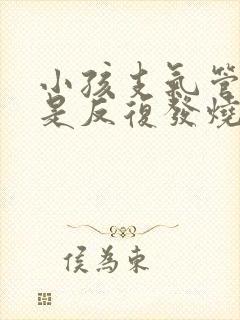 小孩支氣管
是反復發燒
侯為東